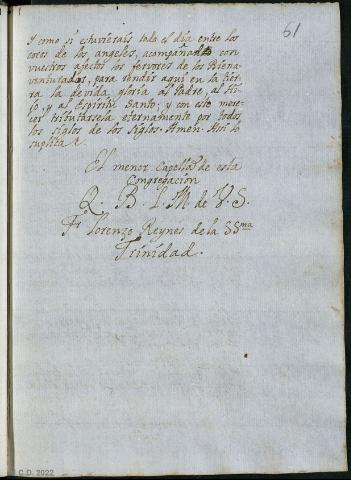 61
Y como si estuvierais todo el dia entre los
coros de los angeles, acompañad con
vuestros afectos los fervores de los Biena-
venturados, para rendir aqui en la tier-
ra la devida gloria al Padre, al Hi-
jo, y al Espiritu Santo; y con esto mere-
cer tributarsela eternamente por todos
los siglos de los siglos. Amen. Assi lo
suplica
El menor Capellan de esta
Congregacion
Q. B. L. M. de V. S.
Fr Lorenzo Reynes de la SSma
Trinidad.
C.D. 2022